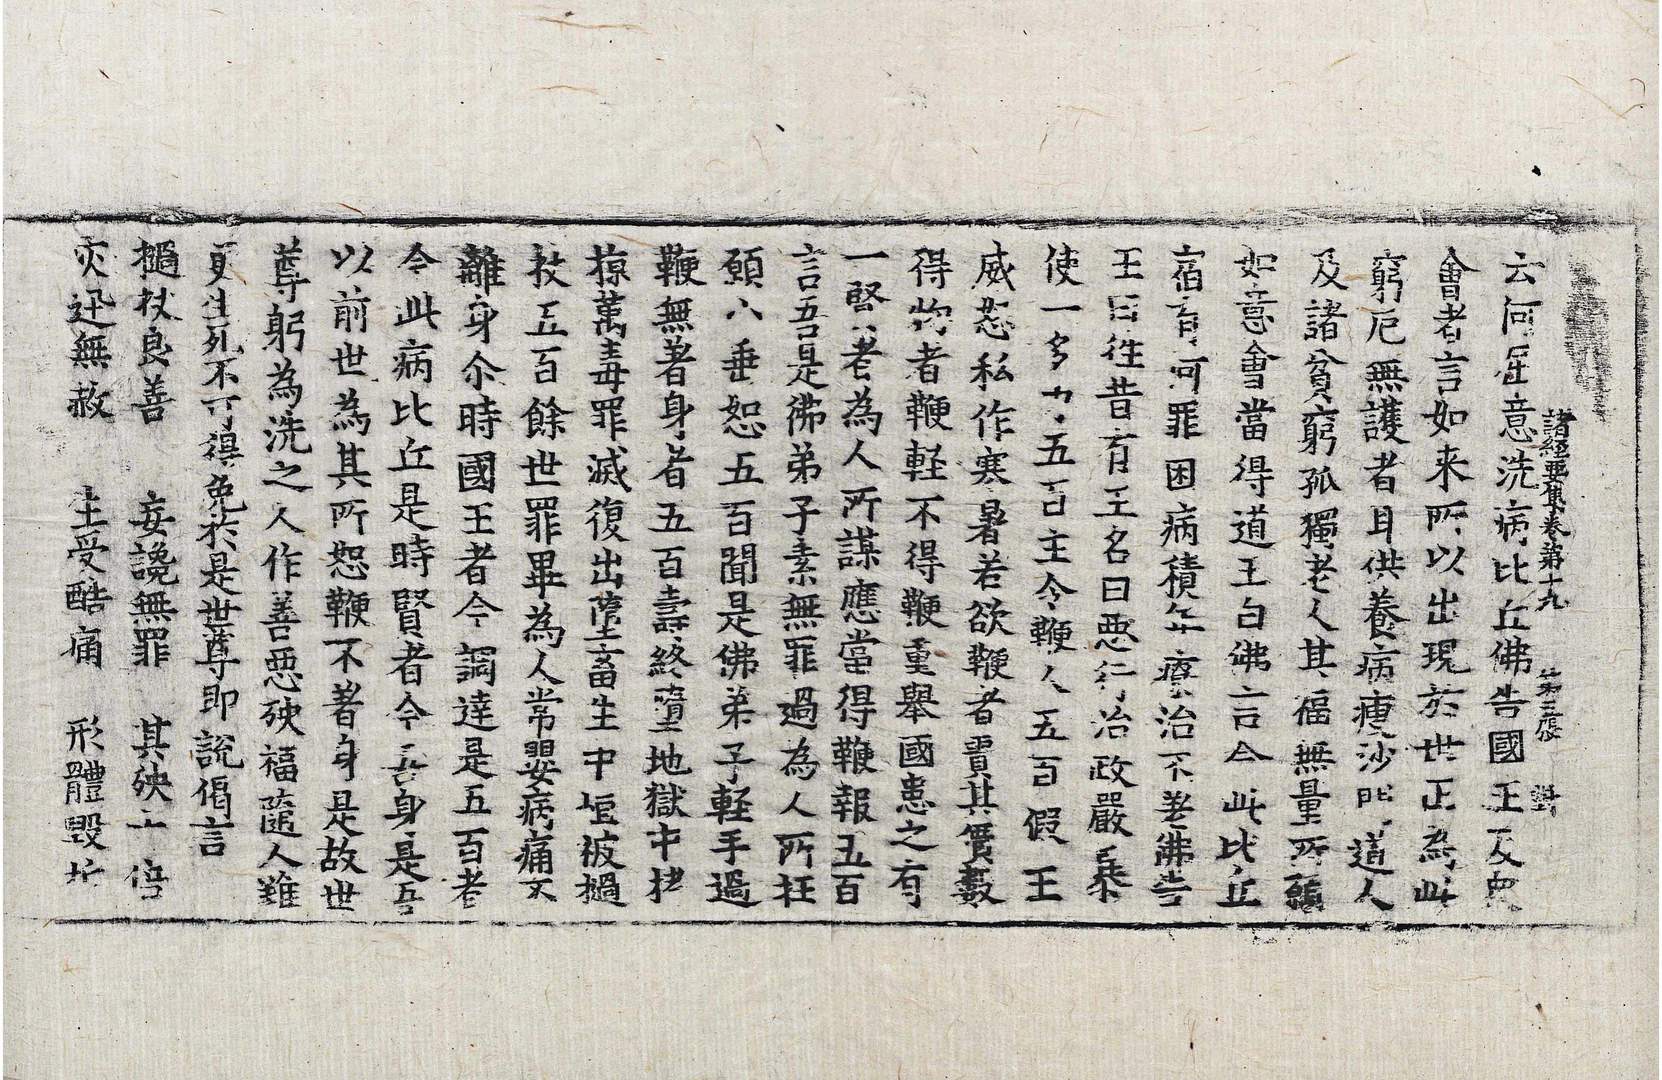 諸經要集卷第十九 第三張 對
云何屈意洗病比丘佛告國王及衆
會者言如来所以出現於世正為此
窮厄無護者耳供養病瘦沙門道人
及諸貧窮孤獨老人其福無量所願
如意會當得道王白佛言今此比丘
宿有何罪困病積年療治不差佛告
王曰往昔有王名曰惡行治政嚴暴
使一多力五百主令鞭人五百假王
威怒私作寒暑若欲鞭者責其價數
得物者鞭軽不得鞭重舉國患之有
一賢者為人所謀應當得鞭報五百
言吾是彿弟子素無罪過為人所枉
願小垂恕五百聞是佛弟子軽手過
鞭無著身者五百壽終墮地獄中拷
掠萬毒罪滅復出墮畜生中恒被撾
杖五百餘世罪畢為人常嬰病痛不
離身尒時國王者今調達是五百者
今此病比丘是時賢者今吾身是吾
以前世為其所恕鞭不著身是故世
尊躬為洗之人作善惡殃福隨人雖
更生死不可得免於是世尊即說偈言
撾杖良善 妄讒無罪 其殃十倍
灾迅無赦 生受酷痛 形體毀折